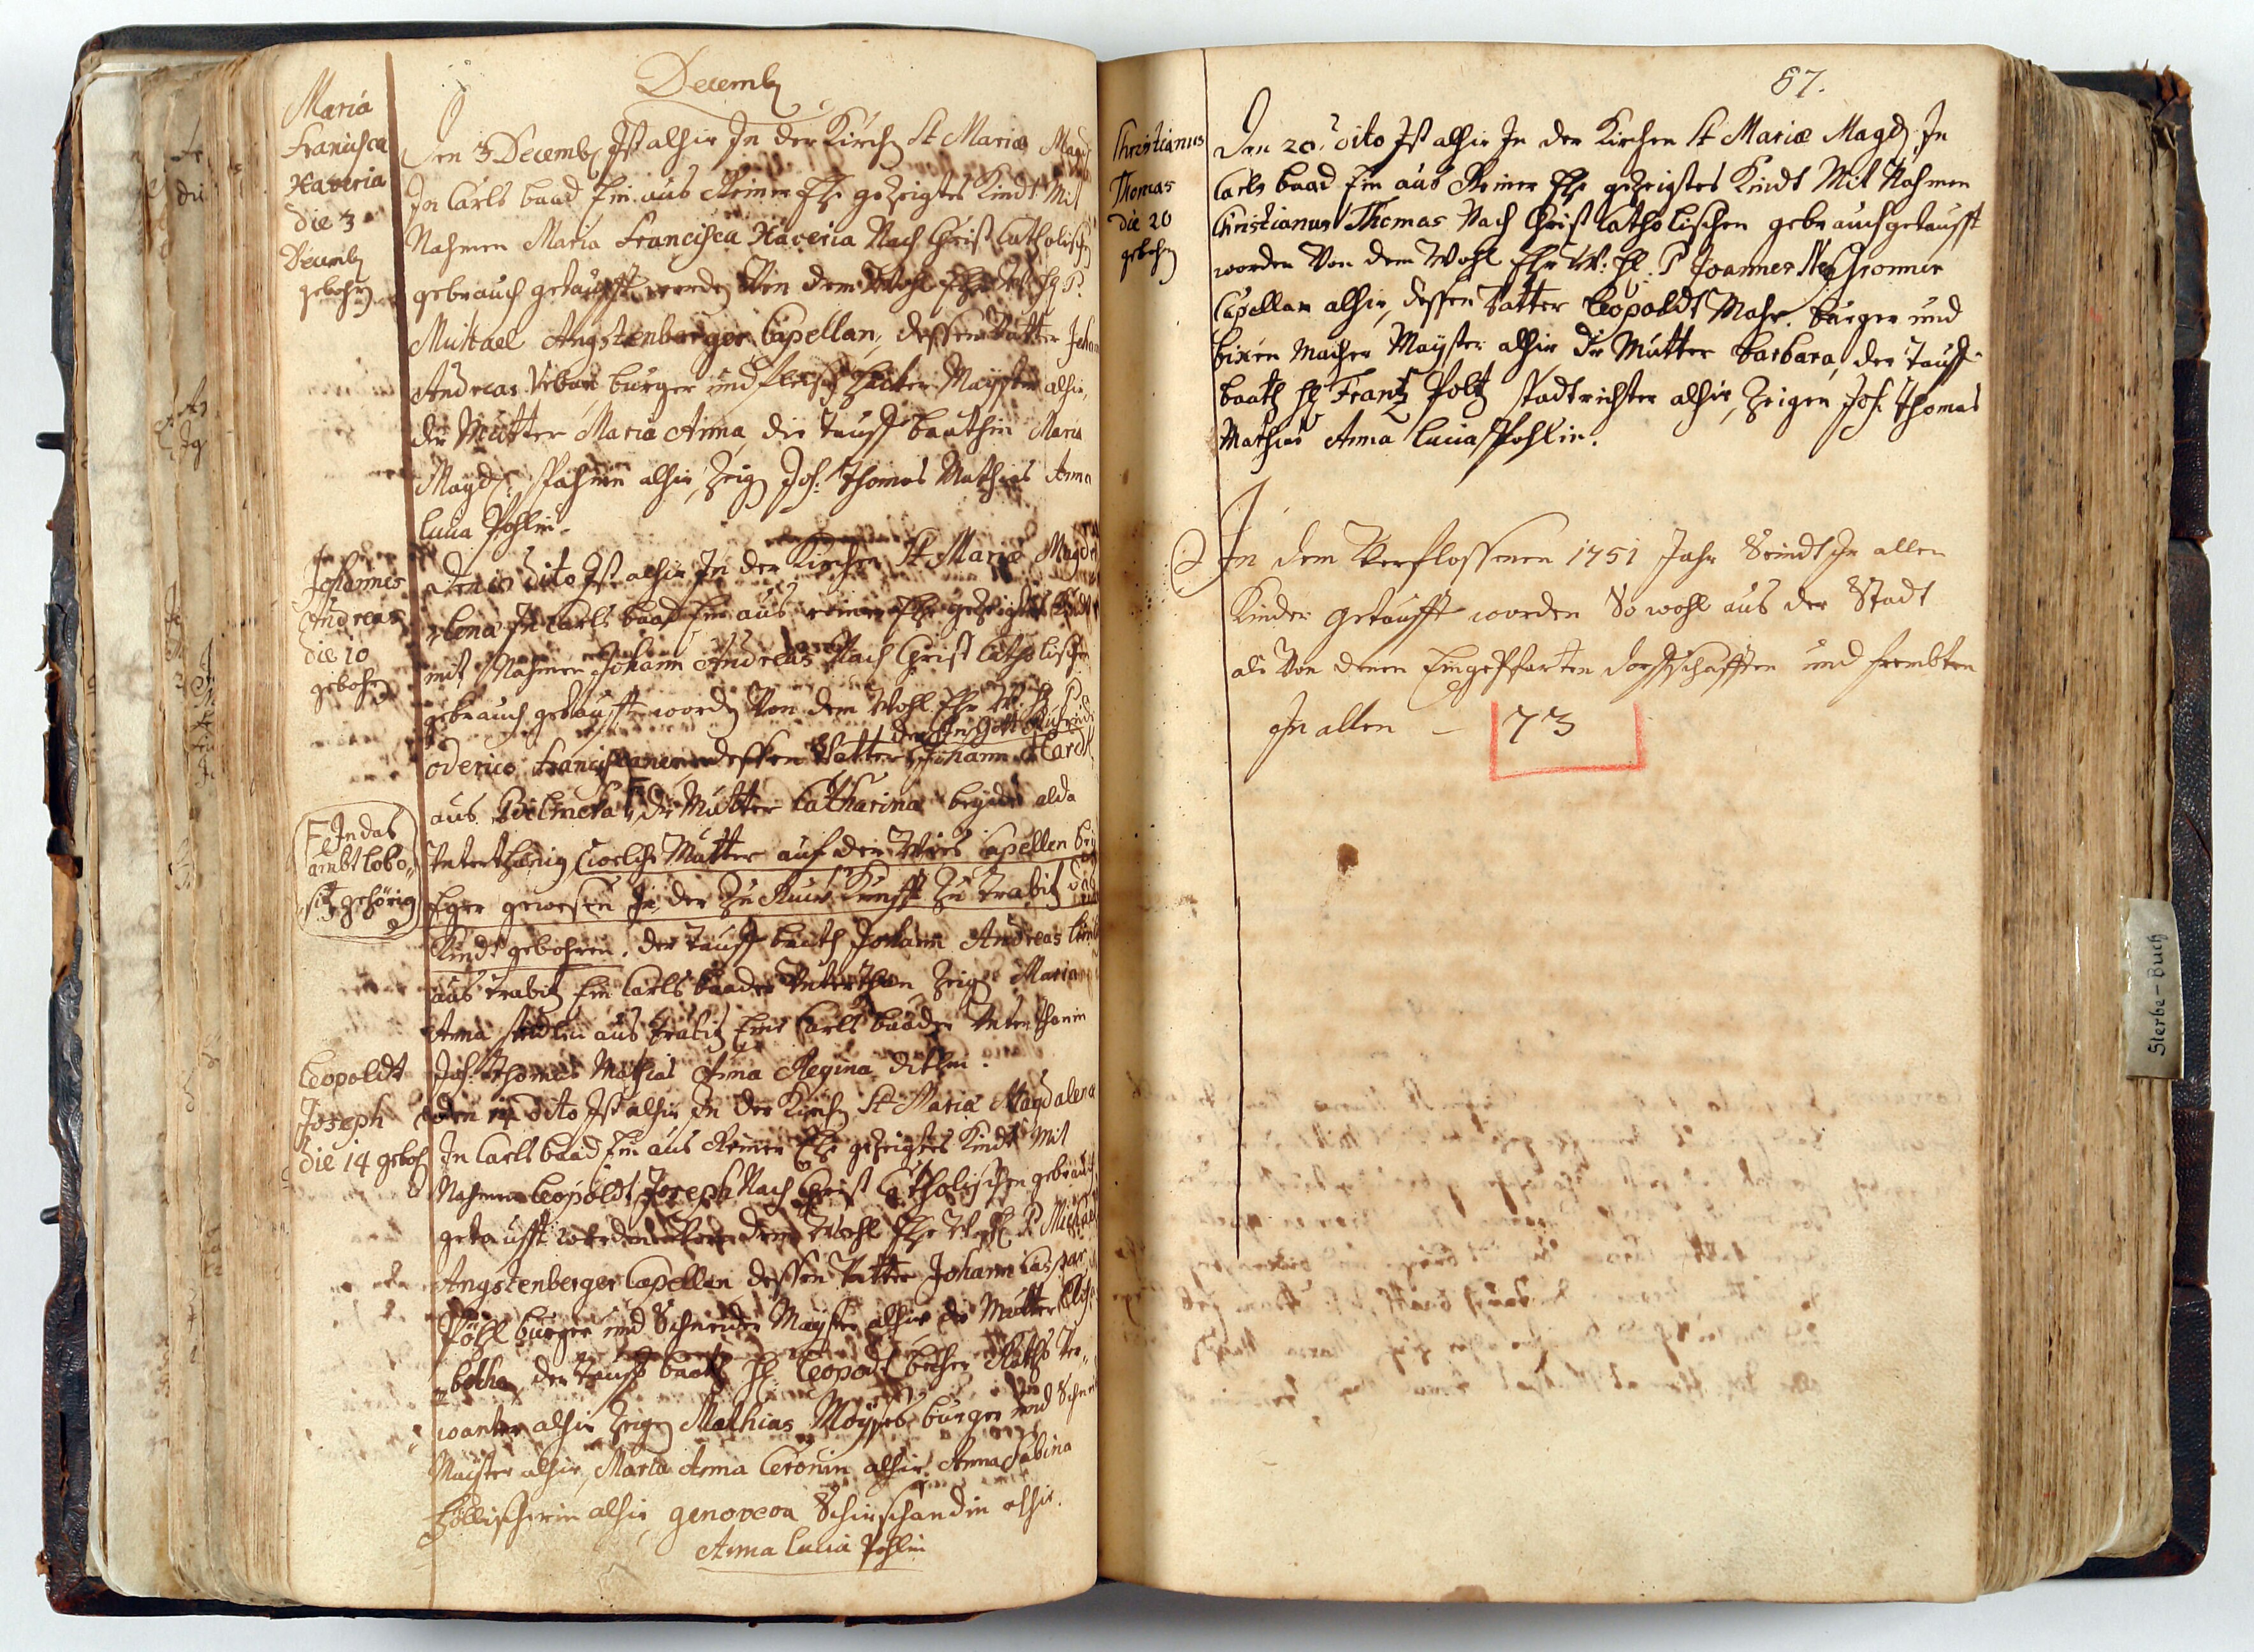 Decemb
Maria
Francisca
Xaveria
die 3
Decemb
gebohrn
Den 3 Decemb Ist alhir In der Kirch St Mariæ Magd
In Carls baad Ein aus Reiner Ehe gezeigtes Kindt Mit
Nahmen Maria Francisca Xaveria Nach Christ Catholischn
gebrauch getaufft worden Von dem Wohl Ehr W. H P.
Michael Angstenberger Capellan, dessen Vatter Johan
Andreas Urban burger und Maÿster alhir,
die Mutter Maria Anna, die tauff baathin Maria
Magd. alhir, Zeig Joh: Thomas Mathias Anna
Lucia Pohlin.
Johannes
Andreas
die 10
gebohrn
Den 10 dito Ist alhir In der Kirchen St Mariæ Magda
lena In Carls baad Ein aus reiner Ehe gezeigtes Kindt
mit Nahmen Johann Andreas Nach Christ Catholischn
gebrauch getaufft wordn Von dem Wohl Ehr W. H P.
oderico Franciscaner dessen Vatter Johann
aus die Mutter Catharina beÿde alda
F In das
ambt Lobo„
sitz gehörig
Unterthanig (welche Mutter auf der Capellen beÿ
Eger gewesen In der Zu Ruck Kunfft Zu trabitz das
Kindt gebohren. der tauff baath Johann Andreas
aus trabitz Ein Carls baader Unterthan Zeige Maria
Anna aus trabitz Eine Carls baader Unterthanin
Joh. Thomas Mathias Anna Regina
Leopoldt
Joseph
die 14 geboh
den 14 dito Ist alhir In der Kirch St Mariæ Magdalena
In Carls baad Ein aus Reiner Ehe gezeigtes Kindt Mit
Nahmen Leopoldt Joseph Nach Christ Catholischen gebrauch
getaufft worden Von dem Wohl Ehr W H P Michael
Angstenberger Capellan dessen Vatter Johann Caspar
Pöhl burger und Schneider Maÿster alhir die Mutter Elisa
betha, der tauff baath H: Leopoldt becher Raths Ver„
wanter alhir, Zeigen Mathias Moÿses burger und Schneid
Maister alhir, Maria Anna alhir. Anna Sabina
alhir, genoveva alhir.
Anna Lucia Pohlin
87.
Christianus
Thomas
die 20
gebohrn
Den 20. dito Ist alhir In der Kirchen St Mariæ Magd. In
Carls baad Ein aus Reiner Ehe gezeigtes Kindt Mit Nahmen
Christianus Thomas Nach Christ Catholischen gebrauch getaufft
worden Von dem Wohl Ehr W: H. P Joannes
Capellan alhir, dessen Vatter Leopoldt Mahr. burger und
bixen Macher Maÿster alhir die Mutter barbara, der tauff„
baath H Frantz Poltz stadtrichter alhir, Zeigen Joh. Thomas
Mathias Anna Lucia Pohlin.
In dem Verflossenen 1751 Jahr Seindt In allen
Kinder getaufft worden So wohl aus der Stadt
als Von denen Eingepfarten dorffschafften und frembten
In allen – 73
Sterbe-Buch